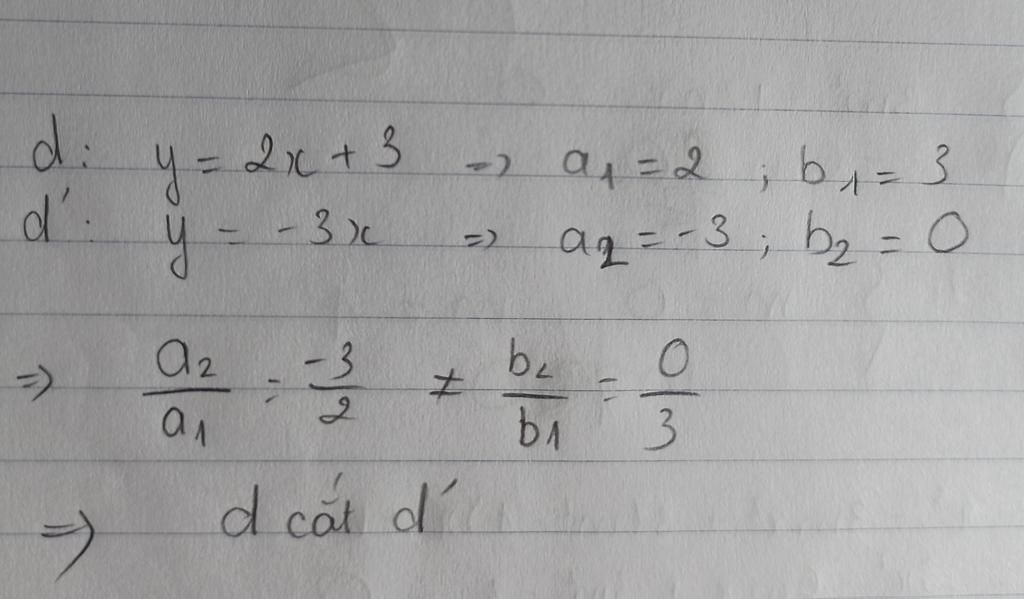 d: y = 2x + 3 => a₁ = 2 ; b₁ = 3
d': y = -3x => a₂ = -3 ; b₂ = 0
=> a₂/a₁ = -3/2 ≠ b₂/b₁ = 0/3
=> d cắt d'